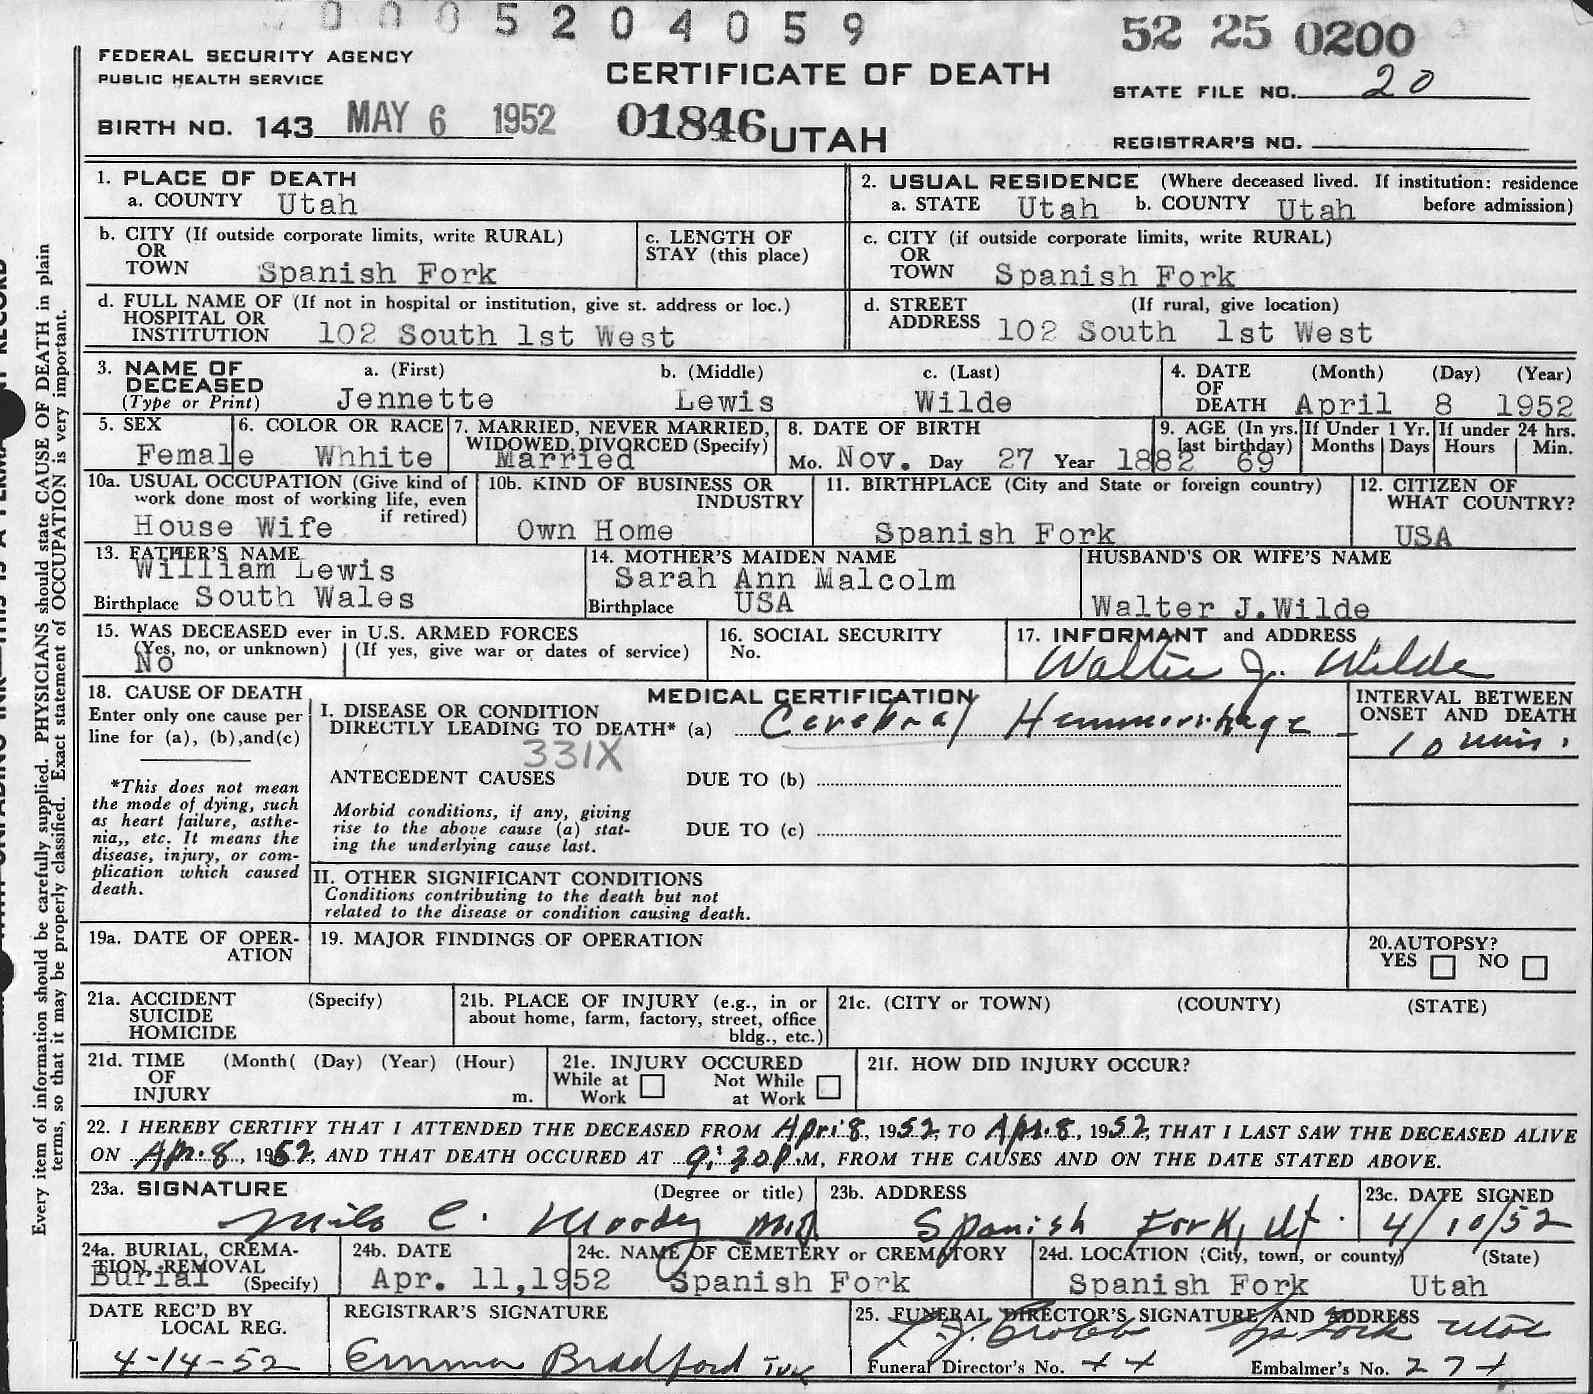 0005204059
52 25 0200
FEDERAL SECURITY AGENCY
PUBLIC HEALTH SERVICE
CERTIFICATE OF DEATH
STATE FILE NO. 20
BIRTH NO. 143 MAY 6 1952
01846 UTAH
REGISTRAR'S NO.
1. PLACE OF DEATH
a. COUNTY Utah
2. USUAL RESIDENCE (Where deceased lived. If institution: residence before admission)
a. STATE Utah b. COUNTY Utah
b. CITY (If outside corporate limits, write RURAL)
OR
TOWN Spanish Fork
c. LENGTH OF
STAY (this place)
c. CITY (if outside corporate limits, write RURAL)
OR
TOWN Spanish Fork
d. FULL NAME OF (If not in hospital or institution, give st. address or loc.)
HOSPITAL OR
INSTITUTION 102 South 1st West
d. STREET (If rural, give location)
ADDRESS 102 South 1st West
3. NAME OF DECEASED
(Type or Print)
a. (First) b. (Middle) c. (Last)
Jennette Lewis Wilde
4. DATE OF DEATH (Month) (Day) (Year)
April 8 1952
5. SEX
Female
6. COLOR OR RACE
Whhite
7. MARRIED, NEVER MARRIED,
WIDOWED, DIVORCED (Specify)
Married
8. DATE OF BIRTH
Mo. Nov. Day 27 Year 1882
9. AGE (In yrs. last birthday) 69
If Under 1 Yr. Months Days
If under 24 hrs. Hours Min.
10a. USUAL OCCUPATION (Give kind of
work done most of working life, even
if retired)
House Wife
10b. KIND OF BUSINESS OR
INDUSTRY
Own Home
11. BIRTHPLACE (City and State or foreign country)
Spanish Fork
12. CITIZEN OF
WHAT COUNTRY?
USA
13. FATHER'S NAME
William Lewis
Birthplace South Wales
14. MOTHER'S MAIDEN NAME
Sarah Ann Malcolm
Birthplace USA
HUSBAND'S OR WIFE'S NAME
Walter J.Wilde
15. WAS DECEASED ever in U.S. ARMED FORCES
(Yes, no, or unknown) (If yes, give war or dates of service)
No
16. SOCIAL SECURITY
No.
17. INFORMANT and ADDRESS
Walter J. Wilde
18. CAUSE OF DEATH
Enter only one cause per
line for (a), (b),and(c)
*This does not mean
the mode of dying, such
as heart failure, asthe-
nia,, etc. It means the
disease, injury, or com-
plication which caused
death.
MEDICAL CERTIFICATION
I. DISEASE OR CONDITION
DIRECTLY LEADING TO DEATH* (a) Cerebral Hemmorrhage
331X
INTERVAL BETWEEN
ONSET AND DEATH
10 min.
ANTECEDENT CAUSES
DUE TO (b)
Morbid conditions, if any, giving
rise to the above cause (a) stat-
ing the underlying cause last.
DUE TO (c)
II. OTHER SIGNIFICANT CONDITIONS
Conditions contributing to the death but not
related to the disease or condition causing death.
19a. DATE OF OPER-
ATION
19. MAJOR FINDINGS OF OPERATION
20.AUTOPSY?
YES NO
21a. ACCIDENT (Specify)
SUICIDE
HOMICIDE
21b. PLACE OF INJURY (e.g., in or
about home, farm, factory, street, office
bldg., etc.)
21c. (CITY or TOWN) (COUNTY) (STATE)
21d. TIME (Month( (Day) (Year) (Hour)
OF
INJURY m.
21e. INJURY OCCURED
While at Work Not While at Work
21f. HOW DID INJURY OCCUR?
22. I HEREBY CERTIFY THAT I ATTENDED THE DECEASED FROM Apri 8, 1952, TO Apr. 8, 1952, THAT I LAST SAW THE DECEASED ALIVE
ON Apr. 8, 1952, AND THAT DEATH OCCURED AT 9:30P.M, FROM THE CAUSES AND ON THE DATE STATED ABOVE.
23a. SIGNATURE (Degree or title)
Milo C. Moody M.D.
23b. ADDRESS
Spanish Fork, Ut.
23c. DATE SIGNED
4/10/52
24a. BURIAL, CREMA-
TION, REMOVAL
(Specify)
Burial
24b. DATE
Apr. 11,1952
24c. NAME OF CEMETERY or CREMATORY
Spanish Fork
24d. LOCATION (City, town, or county) (State)
Spanish Fork Utah
DATE REC'D BY
LOCAL REG.
4-14-52
REGISTRAR'S SIGNATURE
Emma Bradford
25. FUNERAL DIRECTOR'S SIGNATURE AND ADDRESS
Sp Fork Utah
Funeral Director's No. Embalmer's No.
Every item of information should be carefully supplied. PHYSICIANS should state CAUSE OF DEATH in plain
terms, so that it may be properly classified. Exact statement of OCCUPATION is very important.